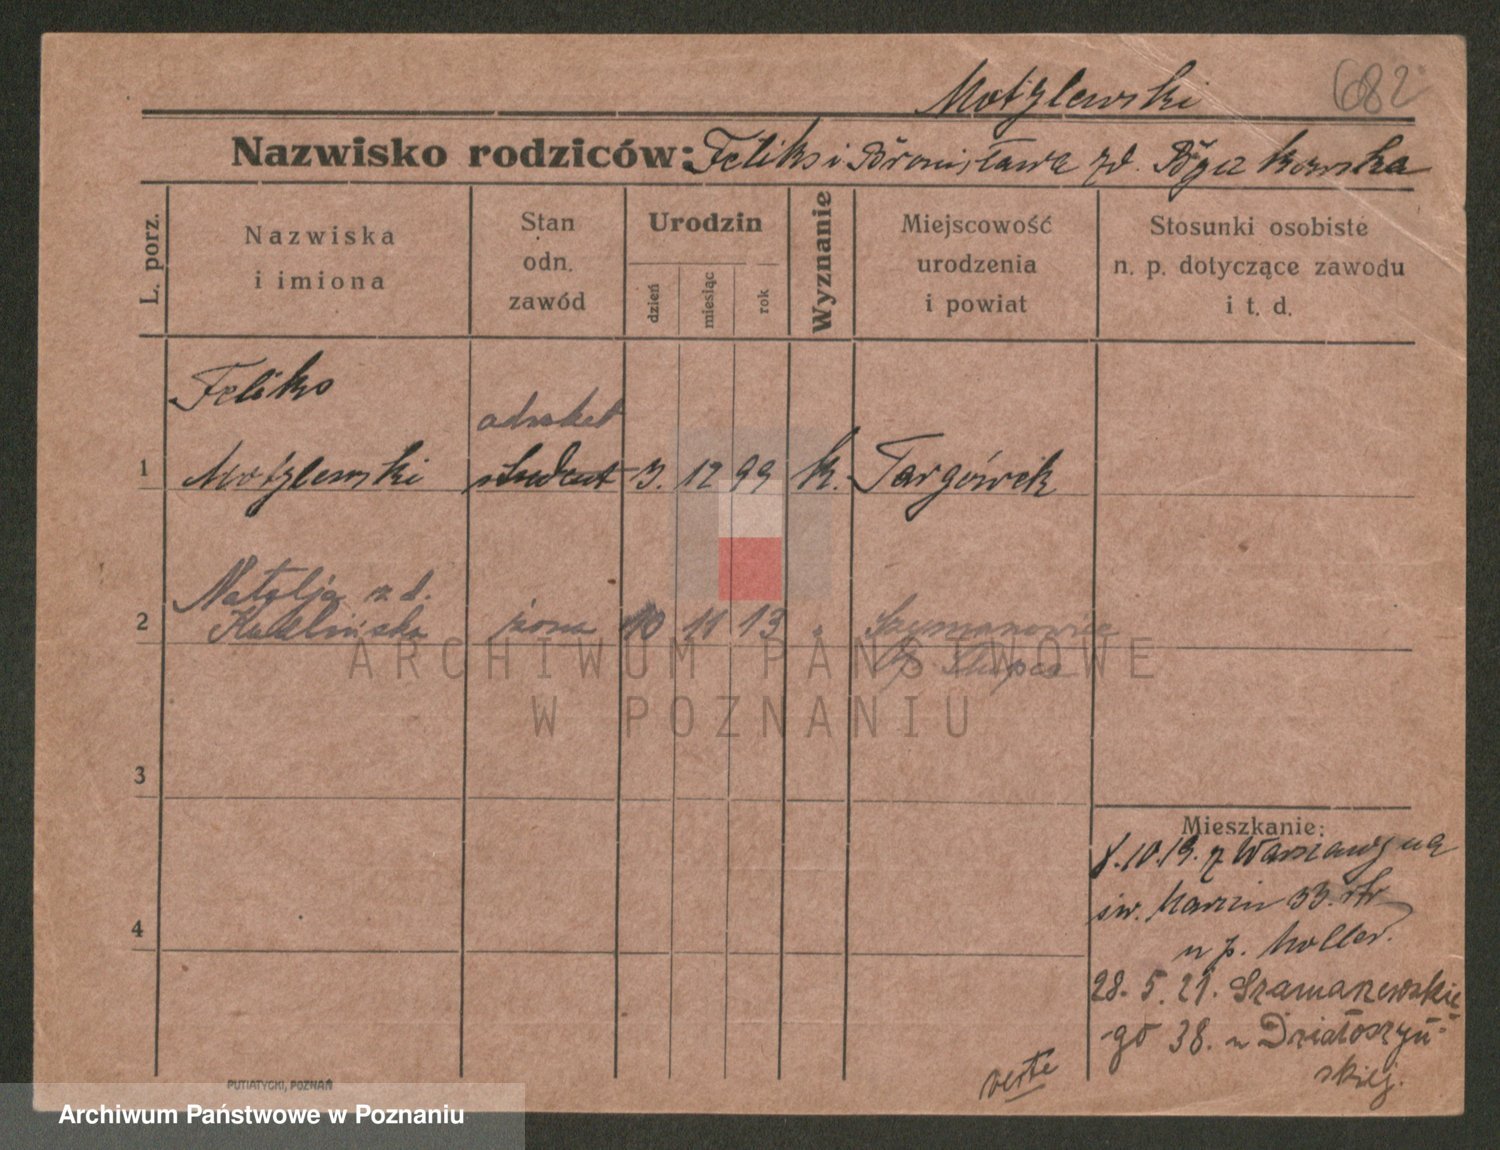 Motylewski 682
Nazwisko rodziców: Feliks i Bronisława zd. Bączkowska
L. porz.
Nazwiska
i imiona
Stan
odn.
zawód
Urodzin
dzień
miesiąc
rok
Wyznanie
Miejscowość
urodzenia
i powiat
Stosunki osobiste
n. p. dotyczące zawodu
i t. d.
Feliks
adwokat
1 Motylewski student 3. 12 99 k. Targówek
Natalja z d.
2 żona 10 11 13 " Szymanowice
p. Słupca
3
4
Mieszkanie:
8.10.19. z Warszawy na
św. Marcin 33. ptr
u p. Moller.
28. 5. 21. Szamarzewskie
-go 38. u Działoszyń-
skiej.
verte
PUTIATYCKI, POZNAŃ
ARCHIWUM PAŃSTWOWE
W POZNANIU
Archiwum Państwowe w Poznaniu